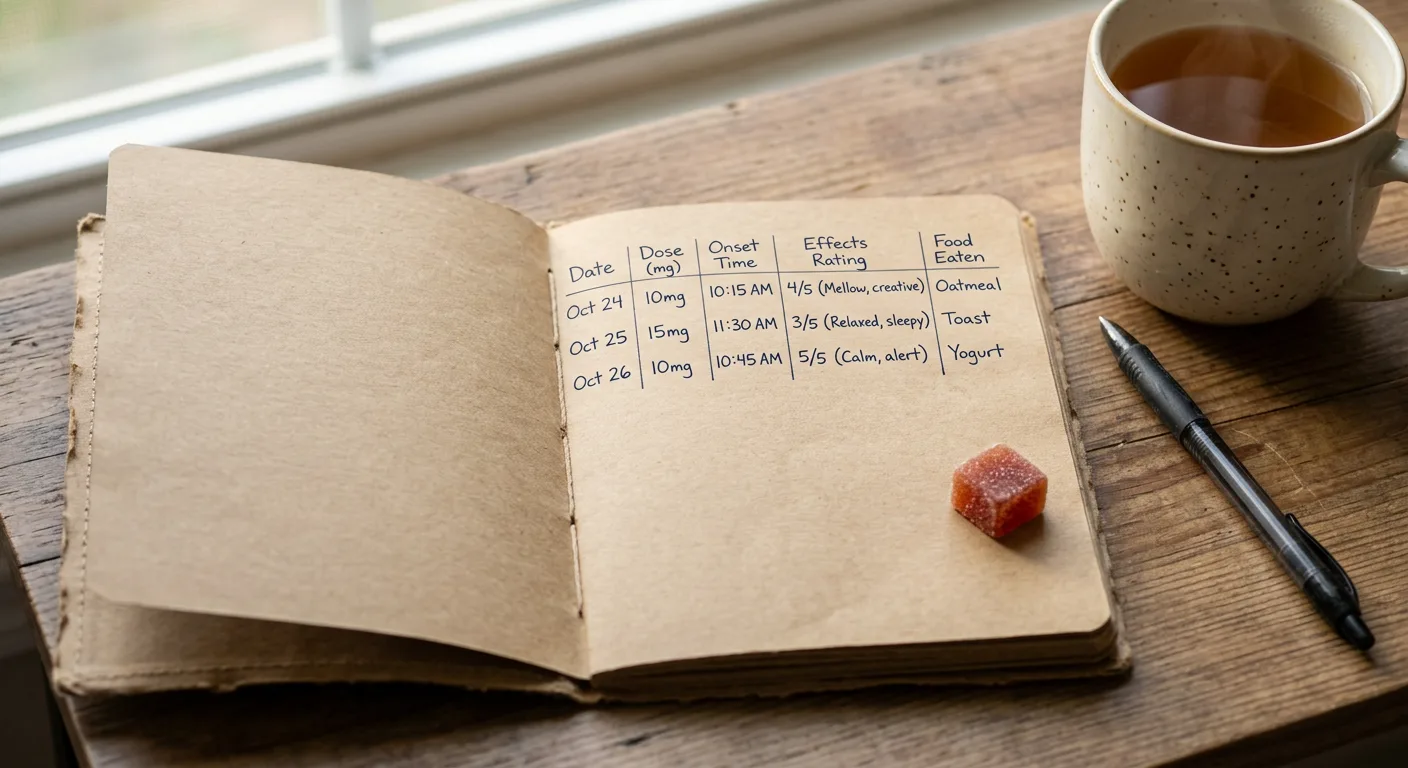 Date Dose (mg) Onset Time Effects Rating Food Eaten
Oct 24 10mg 10:15 AM 4/5 (Mellow, creative) Oatmeal
Oct 25 15mg 11:30 AM 3/5 (Relaxed, sleepy) Toast
Oct 26 10mg 10:45 AM 5/5 (Calm, alert) Yogurt